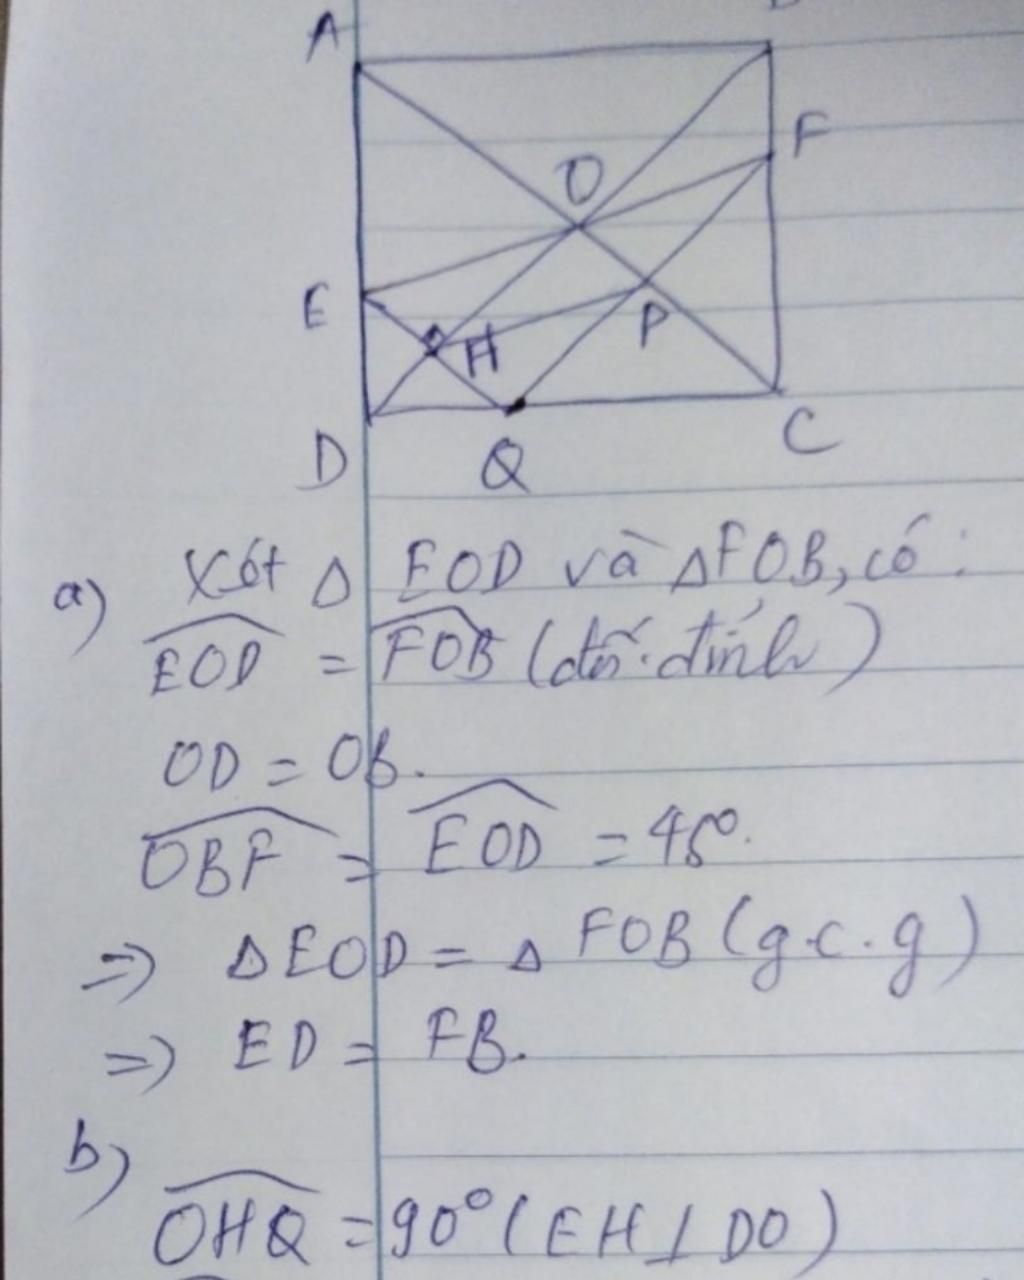 A
F
O
E
H
P
D
Q
C
a) Xét Δ EOD và ΔFOB, có:
EOD = FOB (đđ. đỉnh)
OD = OB.
OBF = EOD = 45°.
=> ΔEOD = Δ FOB (g.c.g)
=> ED = FB.
b)
OHQ = 90° (EH ⊥ DO)